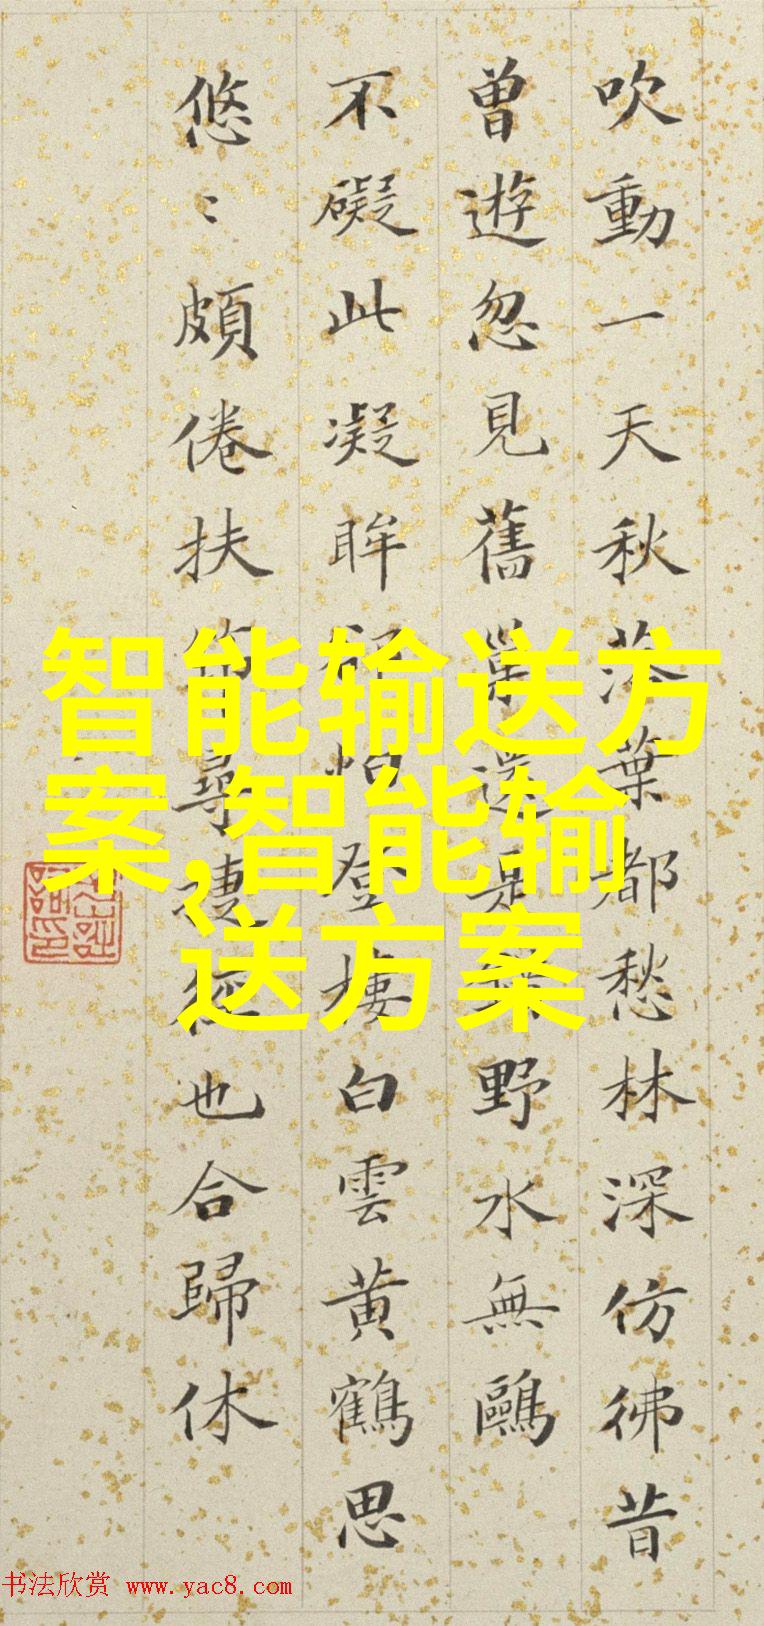 吹動一天秋落葉都愁林深仿彿昔
曾遊忽見舊巢還是野水無鷗
不礙此凝眸怕登樓白雲黃鶴思
悠〻頗倦扶尋也合歸休
智能输送方
案,智能输
送方案
书法欣赏 www.yac8.com